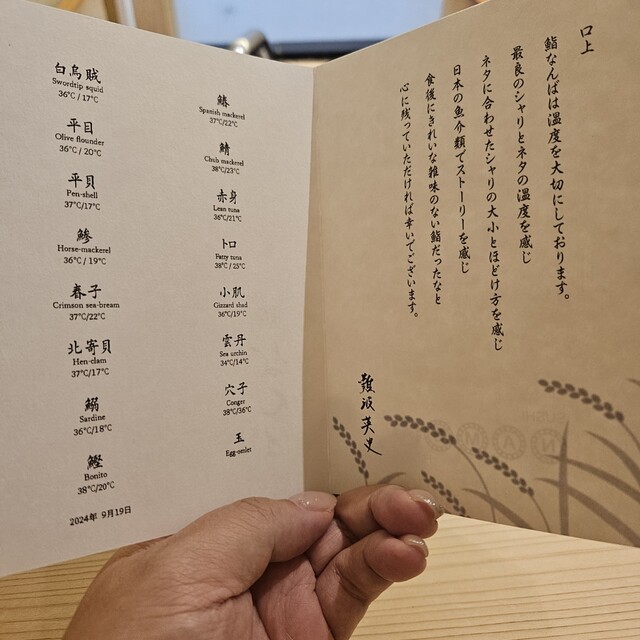 白烏賊
Swordtip squid
36℃ / 17℃
平目
Olive flounder
36℃ / 20℃
平貝
Pen-shell
37℃/17℃
鯵
Horse-mackerel
36℃ / 19℃
春子
Crimson sea-bream
37℃/22℃
北寄貝
Hen-clam
37℃/17℃
鰯
Sardine
36℃/18℃
鰹
Bonito
38℃/20℃
2024年 9月19日
鰆
Spanish mackerel
37℃/22℃
鯖
Chub mackerel
38℃/23℃
赤身
Lean tuna
36℃/21℃
トロ
Fatty tuna
38℃ / 25℃
小肌
Gizzard shad
36℃/19℃
雲丹
Sea urchin
34℃/14℃
穴子
Conger
38℃/36℃
玉
Egg-omlet
口上
鮨なんばは温度を大切にしております。
最良のシャリとネタの温度を感じ
ネタに合わせたシャリの大小とほどけ方を感じ
日本の魚介類でストーリーを感じ
食後にきれいな雑味のない鮨だったなと
心に残っていただければ幸いでございます。
難波英史